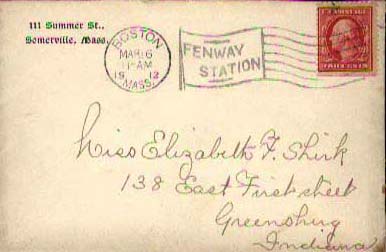 111 Summer St.,
Somerville, Mass.
BOSTON
MAR 6
11-AM
19 12
MASS.
FENWAY
STATION
U.S. POSTAGE
TWO CENTS
Miss Elizabeth F. Shirk
138 East First street
Greensburg
Indiana